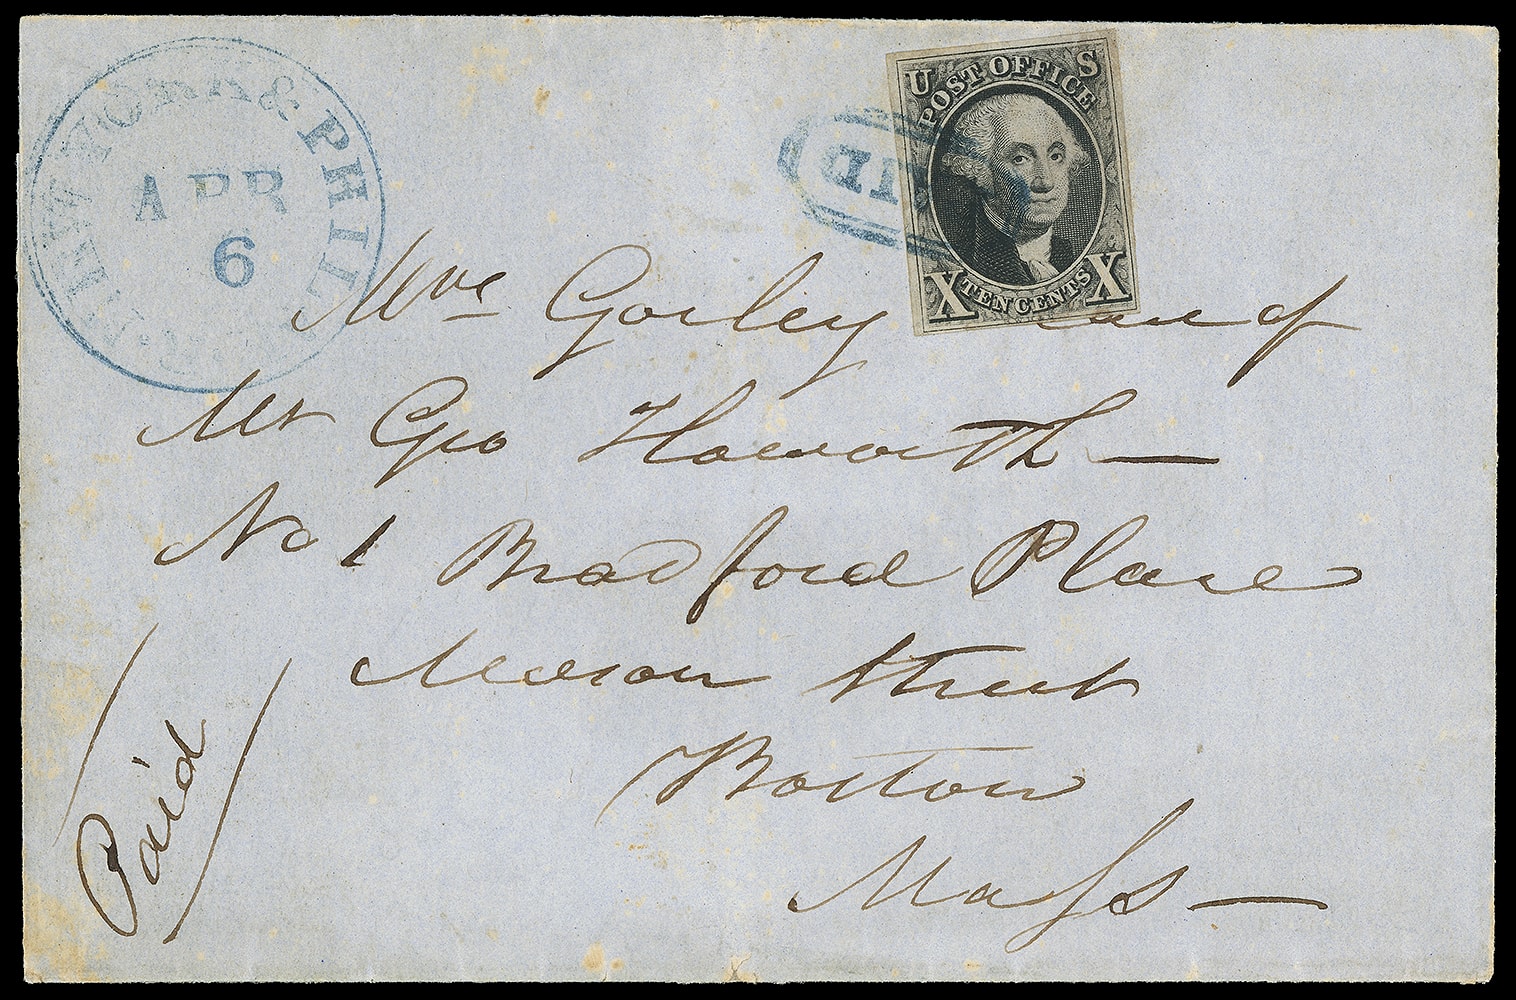 NEW YORK & PHIL
APR
6
U S
POST OFFICE
X TEN CENTS X
Mrs Gorley of
Mr Geo Howorth —
No 1 Bradford Place
Mason Street
Boston
Mass —
Paid